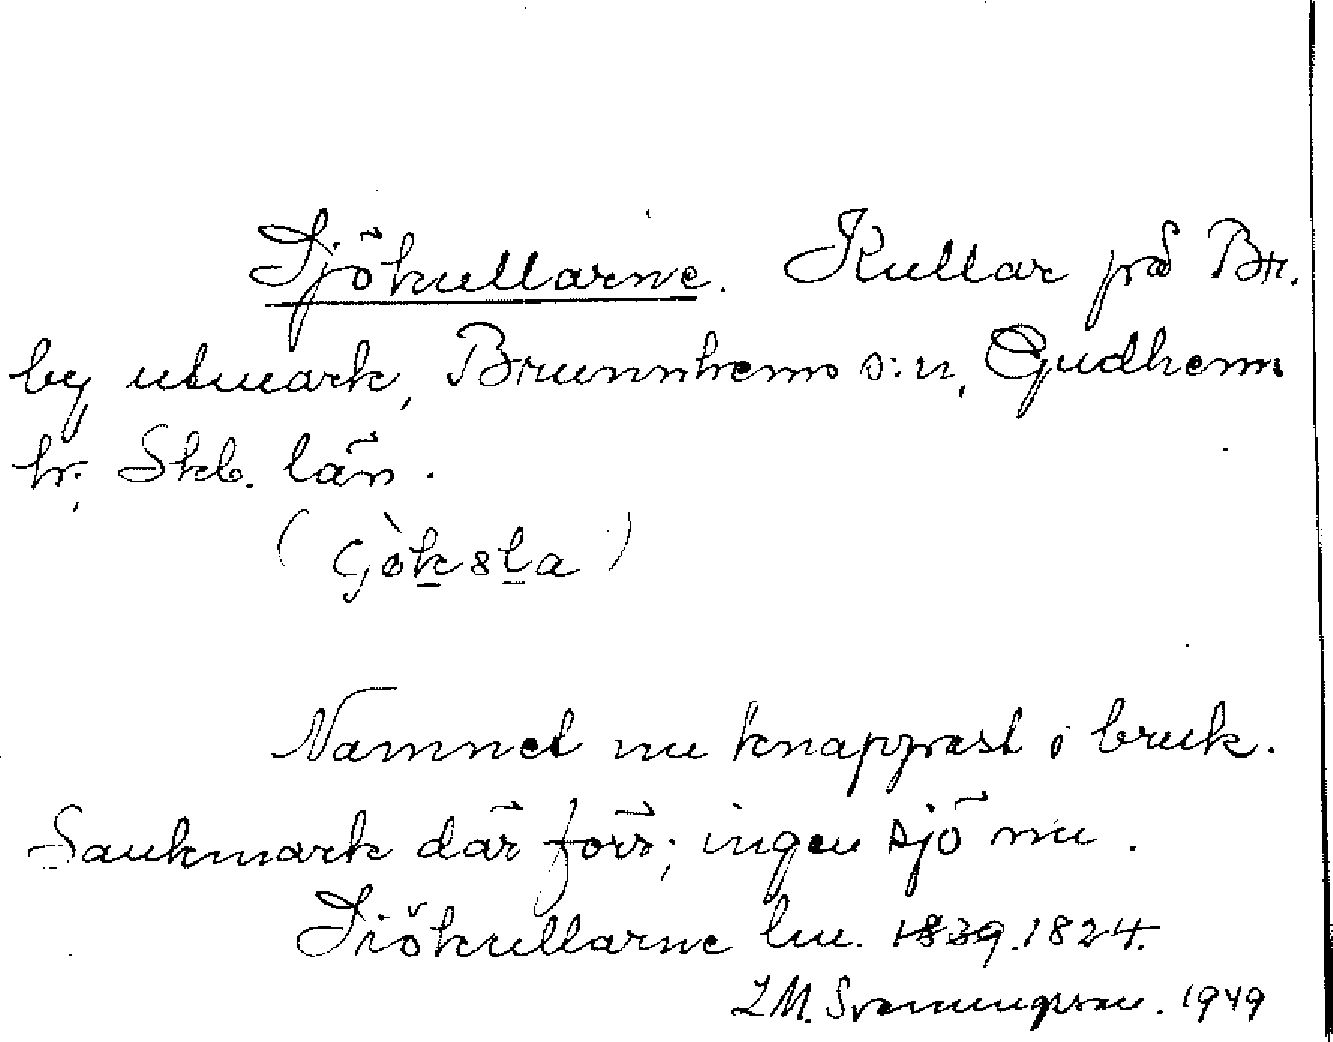 Sjökullarne. Kullar på Br.
by utmark, Brunnhems s:n, Gudhems
hr, Skb. län.
Namnet nu knappast i bruk.
Sankmark där förr; ingen sjö nu.
Siökullarne lm. 1839. 1824.
L M. Svenungsson. 1949